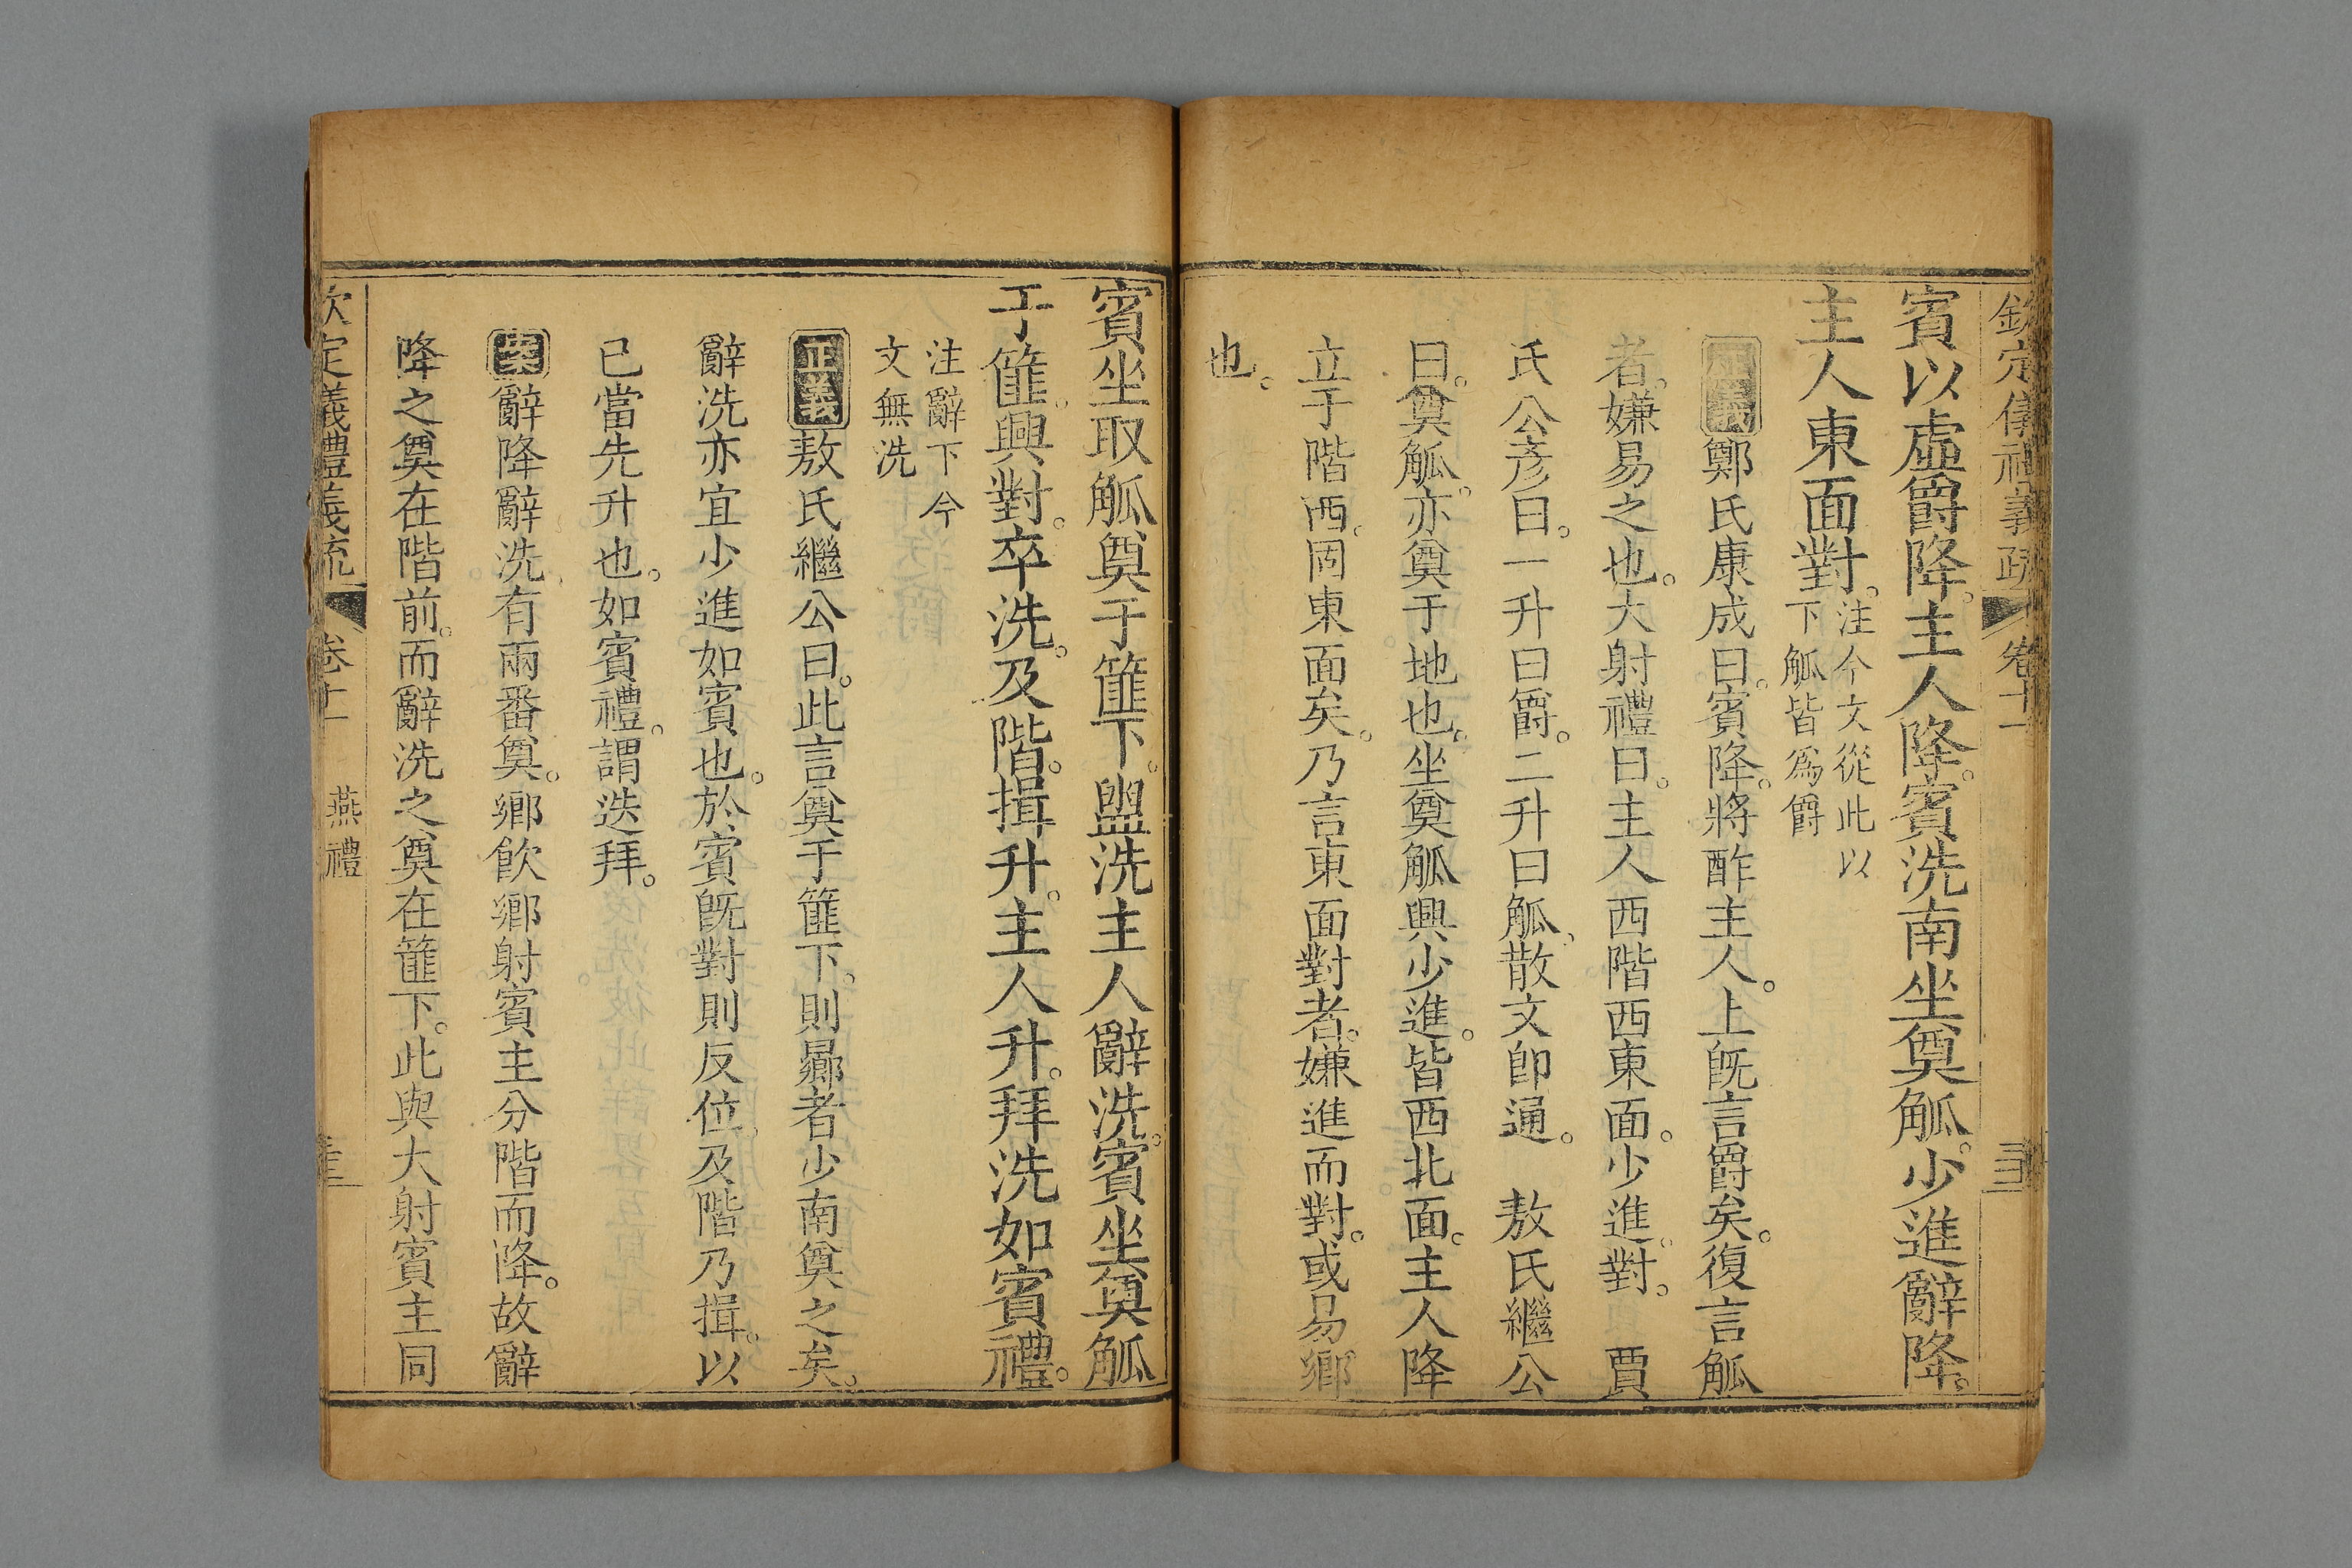 欽定儀禮義疏 卷十一
賓以虛爵降。主人降。賓洗南坐奠觚。少進辭降。
主人東面對。注今文從此以下觚皆爲爵
正義鄭氏康成曰。賓降。將酢主人。上旣言爵矣。復言觚
者。嫌易之也。大射禮曰。主人西階西東面。少進。對。 賈
氏公彥曰。一升曰爵。二升曰觚。散文卽通。 敖氏繼公
曰。奠觚。亦奠于地也。坐奠觚興少進。皆西北面。主人降
立于階西。固東面矣。乃言東面對者。嫌進而對。或易鄉
也。
賓坐取觚奠于篚下。盥洗主人辭洗。賓坐奠觚
于篚。興對。卒洗。及階。揖升。主人升。拜洗如賓禮。
注辭下今
文無洗
正義敖氏繼公曰。此言奠于篚下。則曏者少南奠之矣。
辭洗亦宜少進如賓也。於賓旣對則反位。及階乃揖。以
已當先升也。如賓禮。謂迭拜。
案辭降辭洗有兩番奠。鄉飮鄉射賓主分階而降。故辭
降之奠在階前。而辭洗之奠在篚下。此與大射賓主同
欽定儀禮義疏 卷十一 燕禮